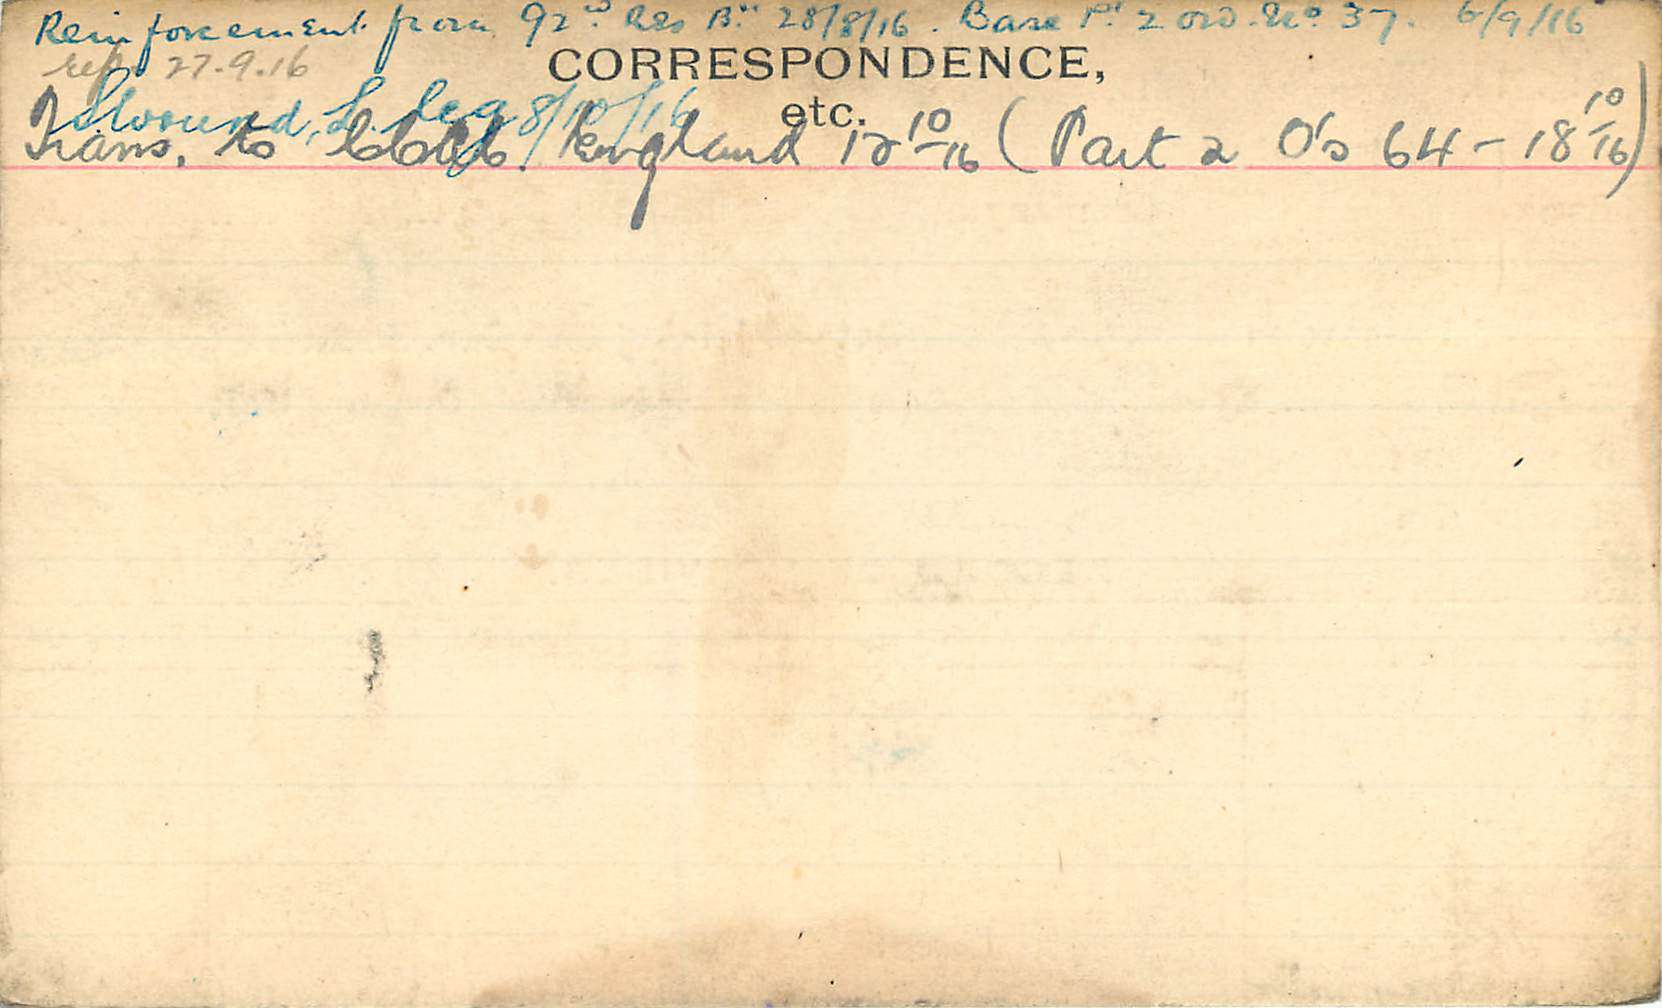 Reinforcement from 92nd Res Bn 28/8/16. Base Pt 2 ord. No 37. 6/9/16
rep 27.9.16
CORRESPONDENCE,
etc.
Swound, L. Leg 8/10/16
Trans. to England 12 10/16 (Part 2 O's 64 - 18 10/16)